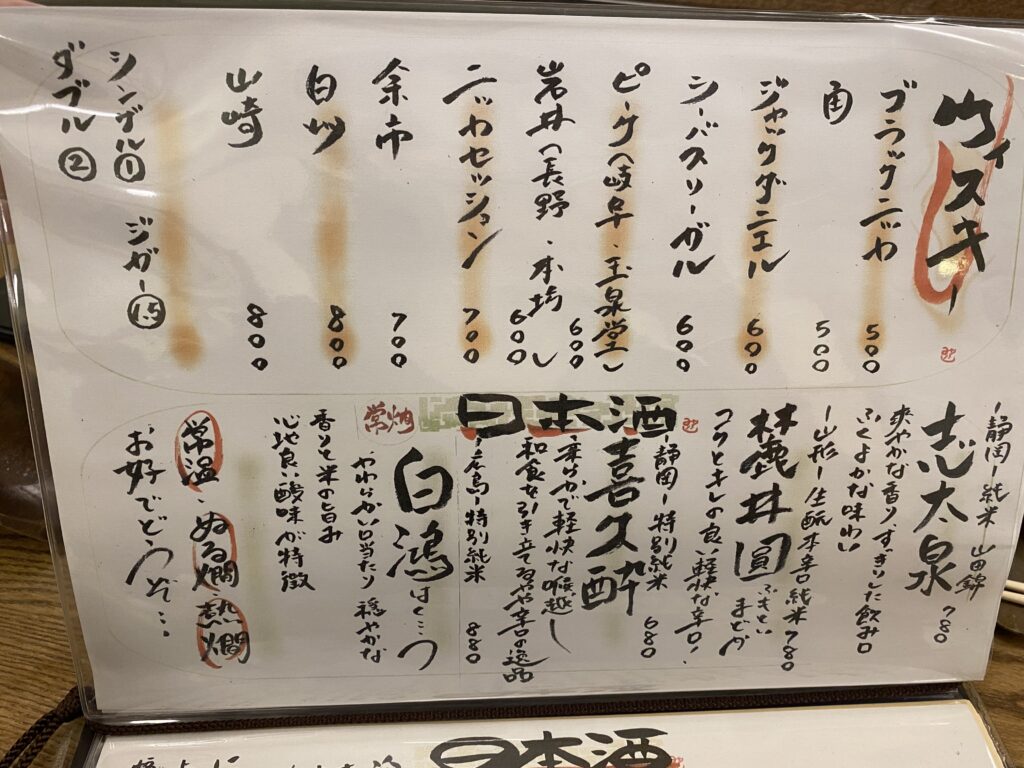 ウイスキー
ブラックニッカ 500
角 500
ジャックダニエル 600
シーバスリーガル 600
ピーク(岐阜・玉泉堂) 600
岩井(長野・本坊) 600
ニッカセッション 700
余市 700
白州 800
山崎 800
シングル① ジガー 1.5
ダブル②
日本酒
常燗
―静岡― 純米 山田錦
志太泉 780
爽やかな香り、すっきりした飲み口
ふくよかな味わい
―山形― 生酛本辛口純米 780
麓井圓 ふもとい まどか
コクとキレの良い軽快な辛口!
―静岡― 特別純米 680
喜久酔
柔らかで軽快な喉越し
和食を引き立てるやや辛口の逸品
―広島― 特別純米 880
白鴻 はくこう
やわらかい口当たり 穏やかな
香りと米の旨み
心地良い酸味が特徴
常温・ぬる燗・熱燗
お好でどうぞ…
日本酒